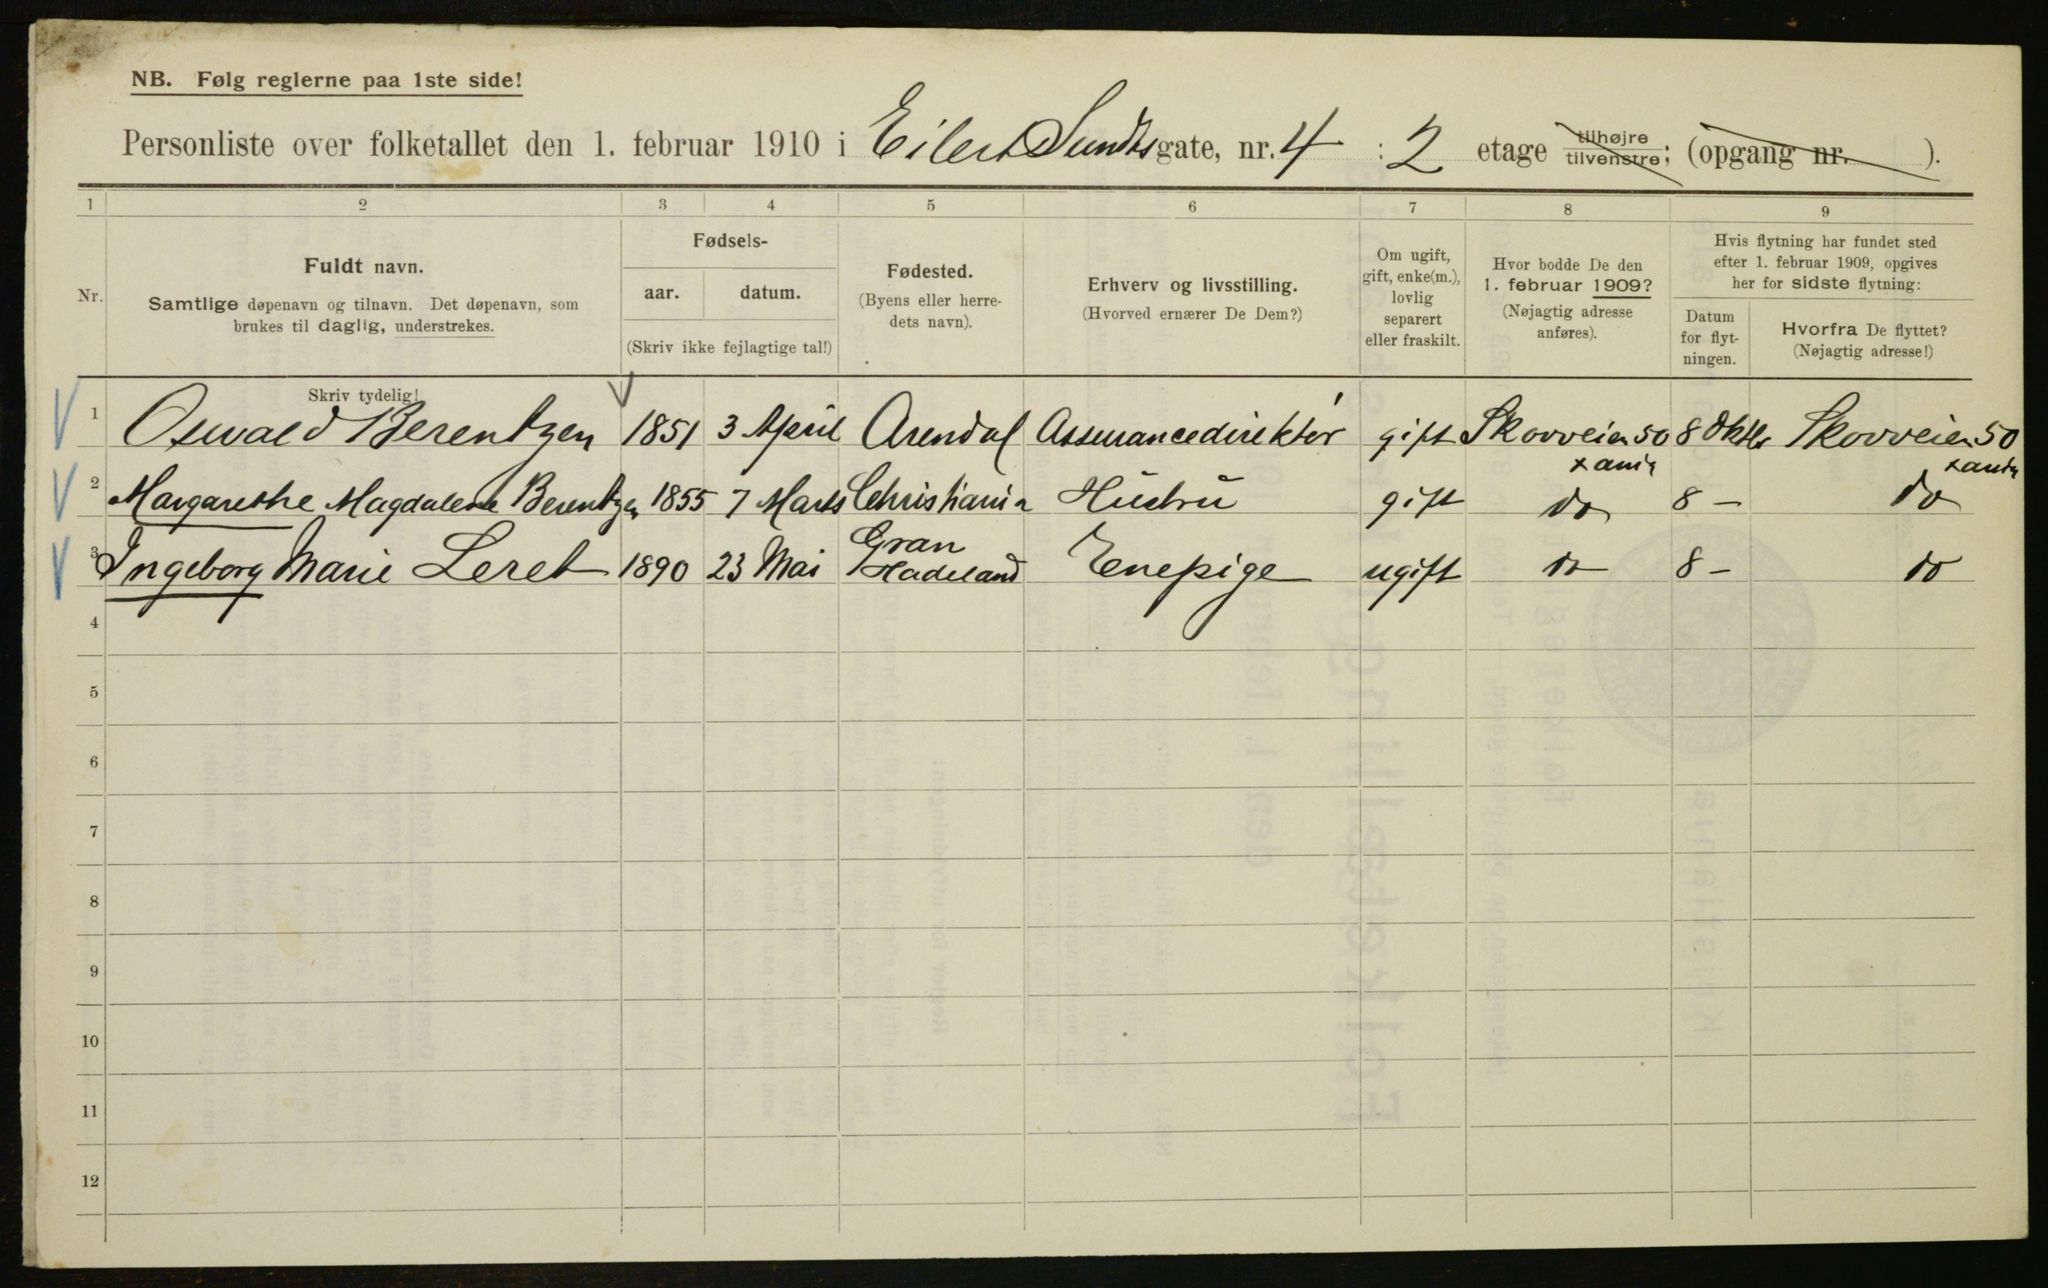 NB. Følg reglerne paa 1ste side!
Personliste over folketallet den 1. februar 1910 i Eilert Sundtsgate, nr. 4 : 2 etage tilhøjre tilvenstre; (opgang nr. ).
1 2 3 4 5 6 7 8 9
Nr.
Fuldt navn.
Samtlige døpenavn og tilnavn. Det døpenavn, som
brukes til daglig, understrekes.
Fødsels-
aar. datum.
(Skriv ikke fejlagtige tal!)
Fødested.
(Byens eller herre-
dets navn).
Erhverv og livsstilling.
(Hvorved ernærer De Dem?)
Om ugift,
gift, enke(m.),
lovlig
separert
eller fraskilt.
Hvor bodde De den
1. februar 1909?
(Nøjagtig adresse
anføres).
Hvis flytning har fundet sted
efter 1. februar 1909, opgives
her for sidste flytning:
Datum
for flyt-
ningen.
Hvorfra De flyttet?
(Nøjagtig adresse!)
Skriv tydelig!
1 Oswald Berentzen 1851 3 April Arendal Assurancedirektør gift Skovveien 50 8 Oktbr Skovveien 50
xania xania
2 Margarethe Magdalene Berentzen 1855 7 Marts Christiania Hustru gift do 8 – do
3 Ingeborg Marie Leret 1890 23 Mai Gran Hadeland Enepige ugift do 8 – do
4
5
6
7
8
9
10
11
12